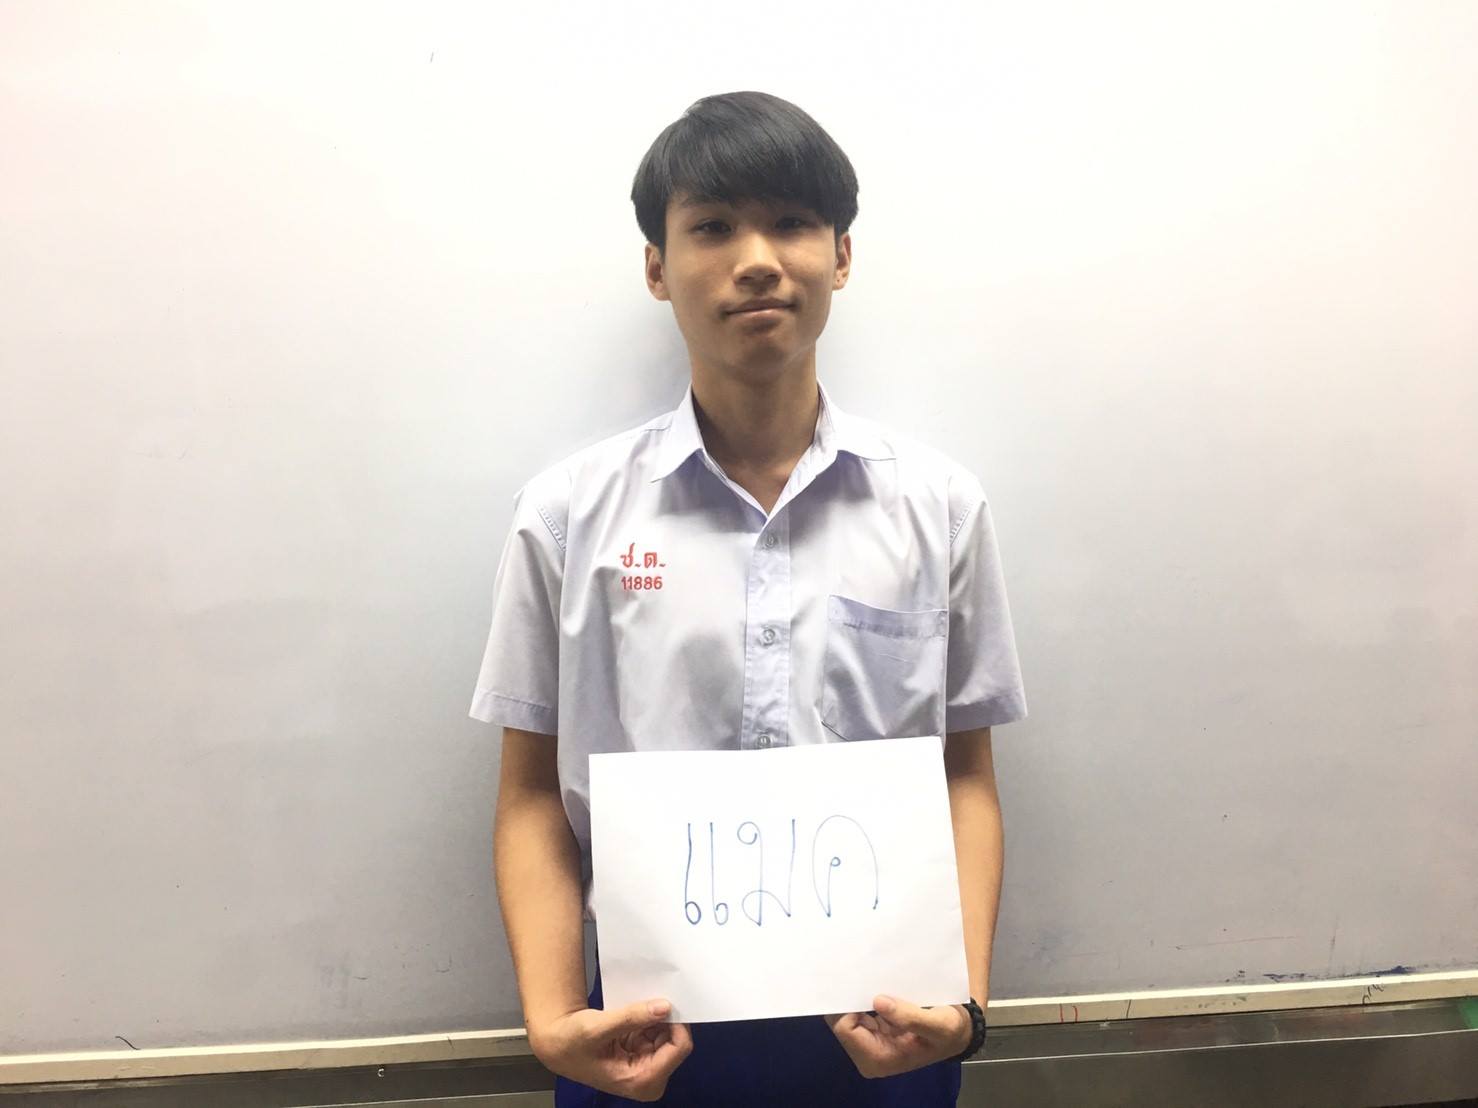 ช.ด.
11886
แมค